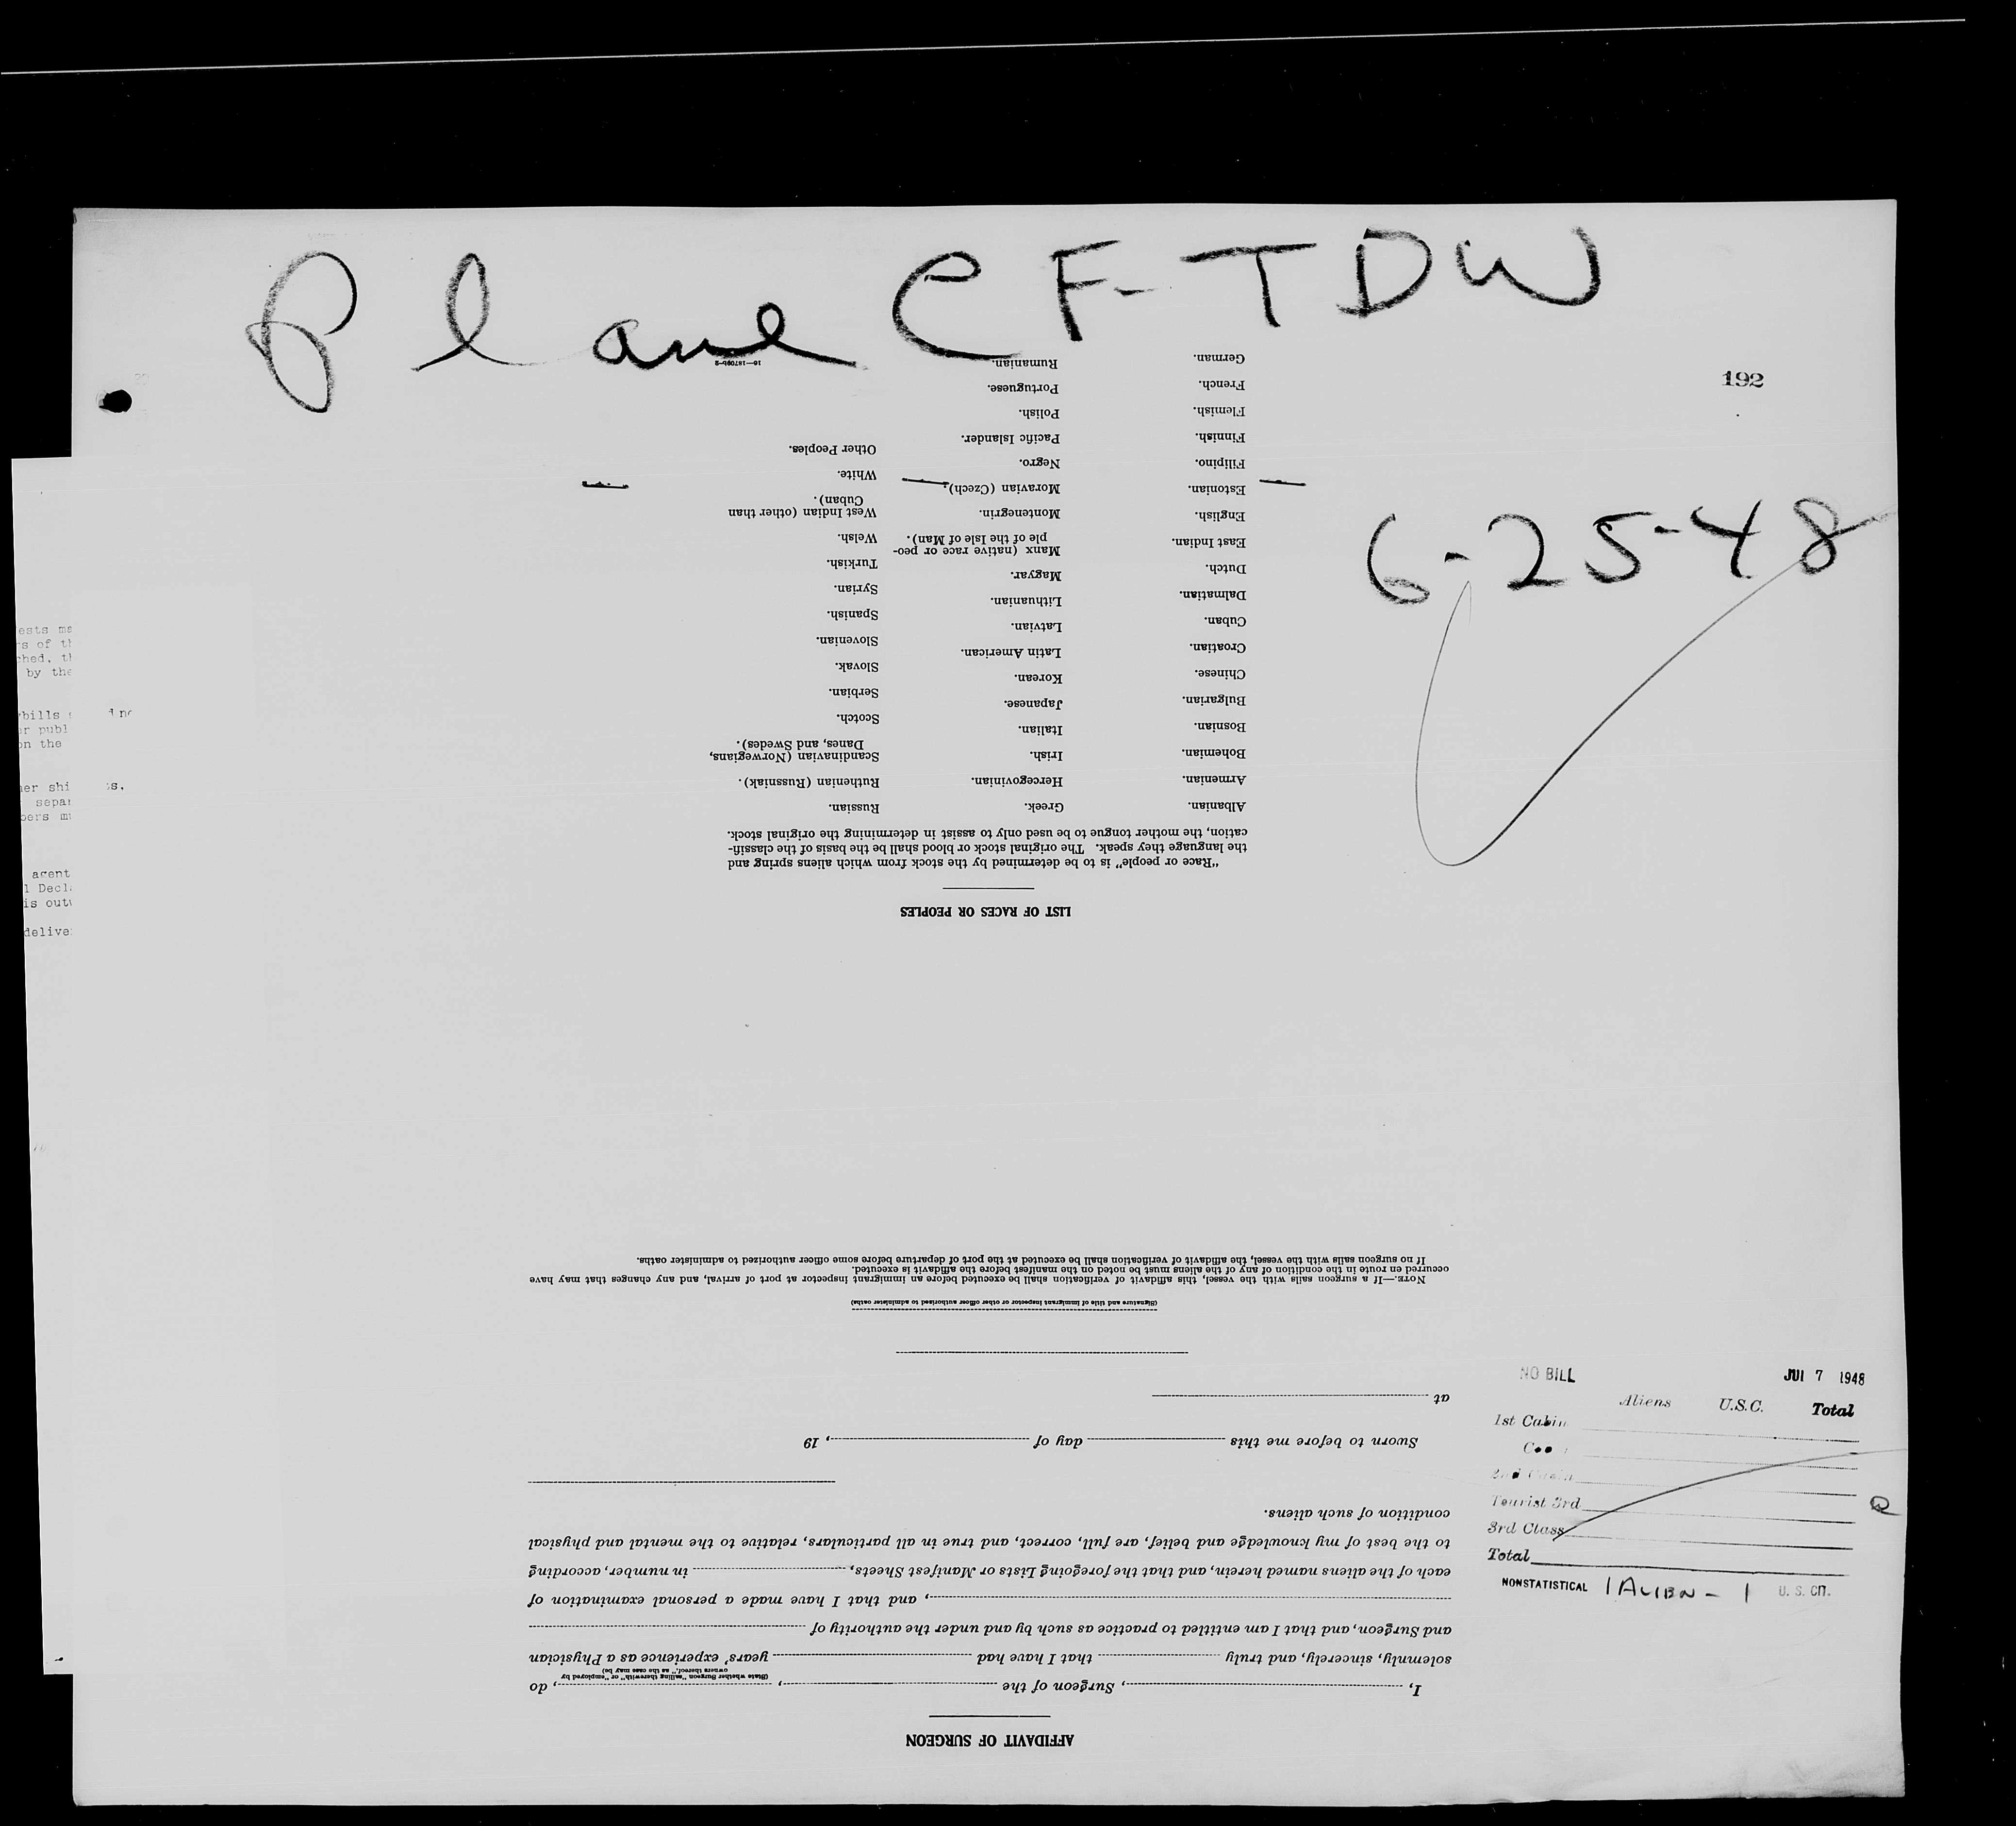 Plane CF-TDW
192
6-25-48
AFFIDAVIT OF SURGEON
I, , Surgeon of the , , do
(State whether Surgeon "sailing therewith" or "employed by
owners thereof," as the case may be)
solemnly, sincerely, and truly that I have had years' experience as a Physician
and Surgeon, and that I am entitled to practice as such by and under the authority of
, and that I have made a personal examination of
each of the aliens named herein, and that the foregoing Lists or Manifest Sheets, in number, according
to the best of my knowledge and belief, are full, correct, and true in all particulars, relative to the mental and physical
condition of such aliens.
Sworn to before me this day of , 19
at
(Signature and title of immigrant inspector or other officer authorized to administer oaths)
NOTE.—If a surgeon sails with the vessel, this affidavit of verification shall be executed before an immigrant inspector at port of arrival, and any changes that may have
occurred en route in the condition of any of the aliens must be noted on the manifest before the affidavit is executed.
If no surgeon sails with the vessel, the affidavit of verification shall be executed at the port of departure before some officer authorized to administer oaths.
LIST OF RACES OR PEOPLES
"Race or people" is to be determined by the stock from which aliens spring and
the language they speak. The original stock or blood shall be the basis of the classifi-
cation, the mother tongue to be used only to assist in determining the original stock.
Albanian.
Armenian.
Bohemian.
Bosnian.
Bulgarian.
Chinese.
Croatian.
Cuban.
Dalmatian.
Dutch.
East Indian.
English.
Estonian.
Filipino.
Finnish.
Flemish.
French.
German.
Greek.
Hercegovinian.
Irish.
Italian.
Japanese.
Korean.
Latin American.
Latvian.
Lithuanian.
Magyar.
Manx (native race or peo-
ple of the Isle of Man).
Montenegrin.
Moravian (Czech).
Negro.
Pacific Islander.
Polish.
Portuguese.
Rumanian.
Russian.
Ruthenian (Russniak).
Scandinavian (Norwegians,
Danes, and Swedes).
Scotch.
Serbian.
Slovak.
Slovenian.
Spanish.
Syrian.
Turkish.
Welsh.
West Indian (other than
Cuban).
White.
Other Peoples.
16—18709b-2
NO BILL
7 1948
Aliens U.S.C. Total
1st Cabin
Tourist 3rd
3rd Class
Total
NONSTATISTICAL 1 ALIEN - 1 U. S. CIT.
ests
of
hed.
by the
bills
publ
on the
er shi
sepa
agent
Decl
is out
delive